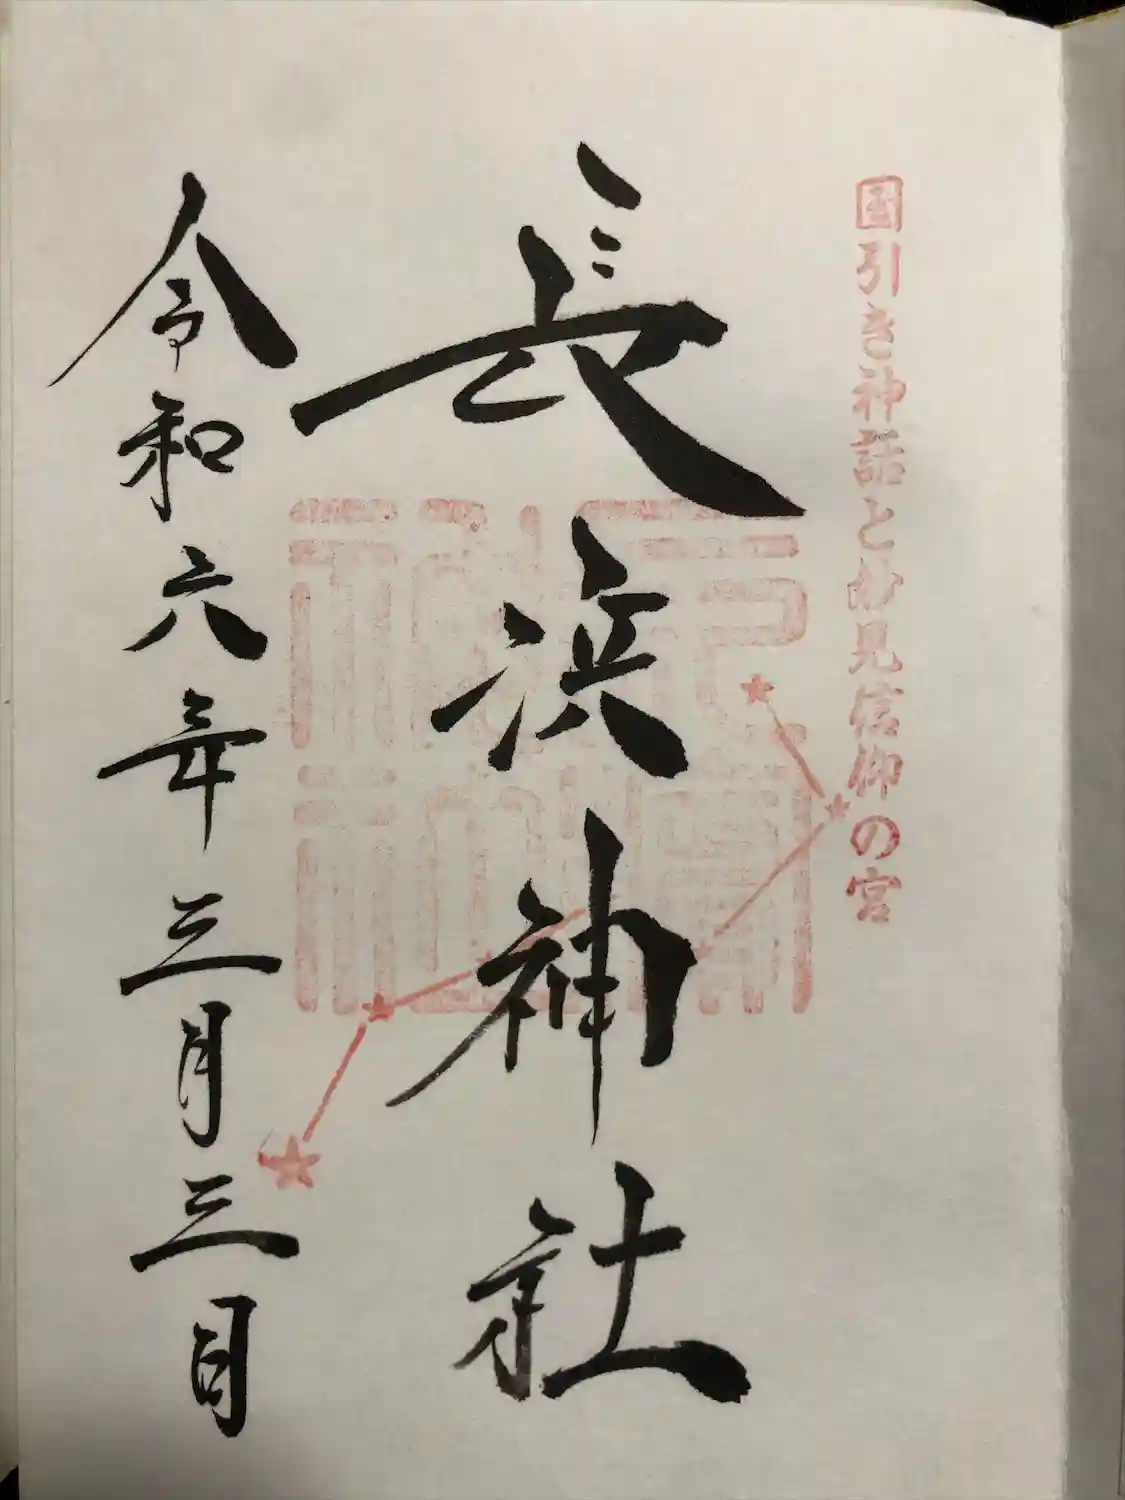 国引き神話と妙見信仰の宮
長浜神社
令和六年三月三日